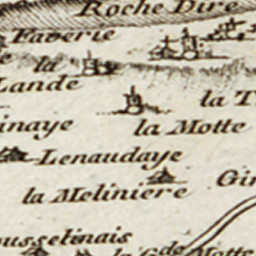 Roche Dire
Faverie
la
Lande
la
la Motte
Lenaudaye
la Meliniere
de
Motte